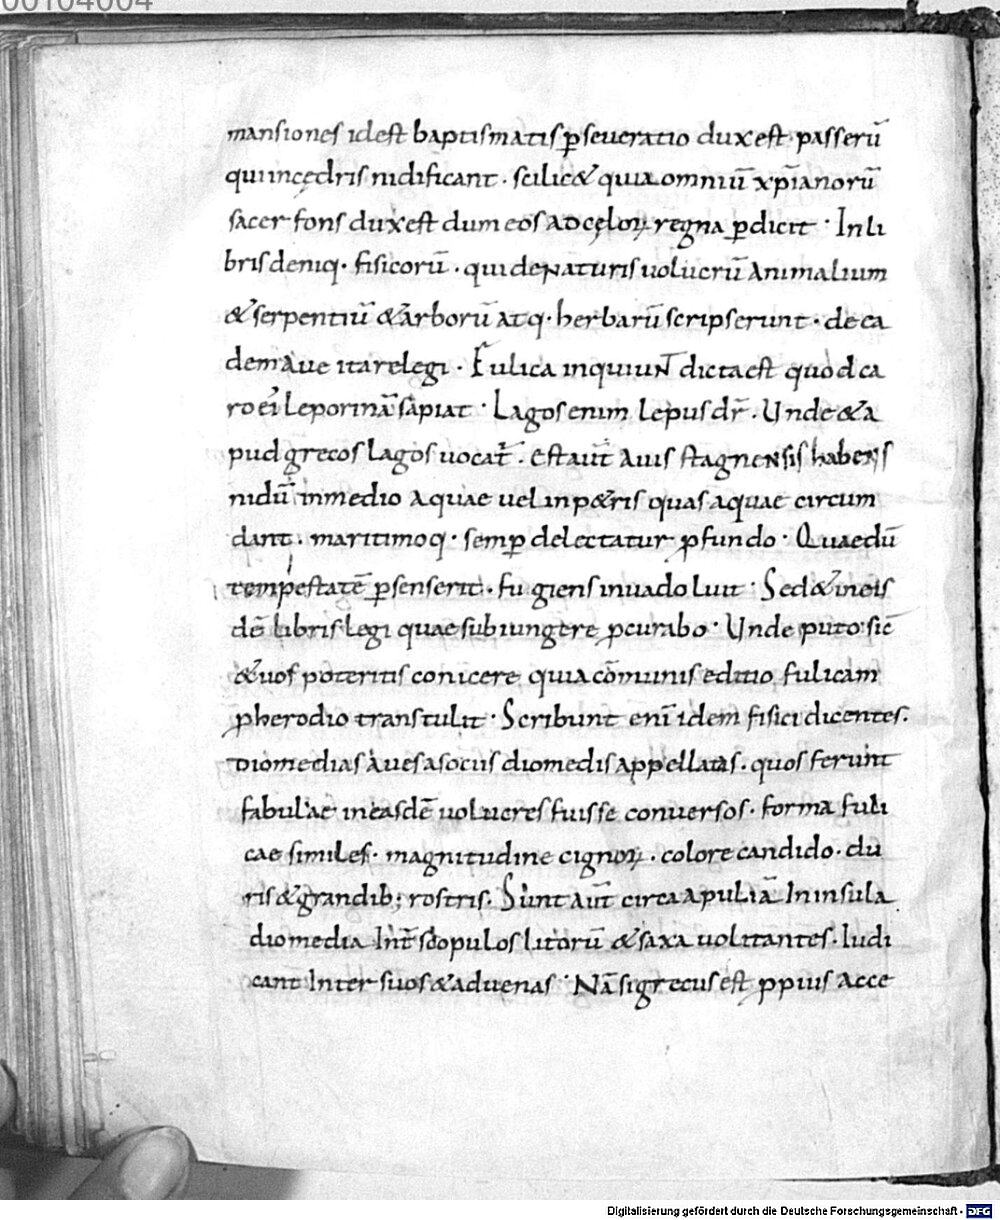 00104004
mansiones idest baptismatis ꝑseueratio dux est· passerū
qui incędris nidificant· scilic& quia omniū xp̄ianorū
sacer fons dux est dum eos ad cęloꝝ regna ꝑdicit· In li
bris deniq· fisicorū· qui de naturis uolucrū animalium
& serpentiū & arborū atq· herbarū scripserunt· de ea
dem aue ita relegi· Fulica inquiunt dicta est quod ca
ro ei leporinā sapiat· Lagos enim lepus dr̄. Unde & a
pud grecos lagos uocat̄. est aut̄ auis stagnensis habens
nidū in medio aquae uel in p&ris quas aquae circum
dant. maritimoq· semꝑ delectatur ꝓfundo· Quae dū
tempestatē ꝑsenserit· fugiens in uado luit· Sed & in eis
dē libris legi quae subiungere ꝓcurabo· Unde puto sic
& uos poteritis conicere quia cōmunis editio fulicam
ꝓ herodio transtulit· Scribunt enī idem fisici dicentes.
diomedias aues a sociis diomedis appellatas. quos ferunt
fabulae in easdē uolucres fuisse conuersos. forma fuli
cae similes· magnitudine cignoꝝ. colore candido. du
ris & grandib; rostris. Sunt aut̄ circa apuliā In insula
diomedia Int̄ scopulos litorū & saxa uolitantes. Iudi
cant Inter suos & aduenas· Nā si grecus est ꝓpius acce
Digitalisierung gefördert durch die Deutsche Forschungsgemeinschaft - DFG